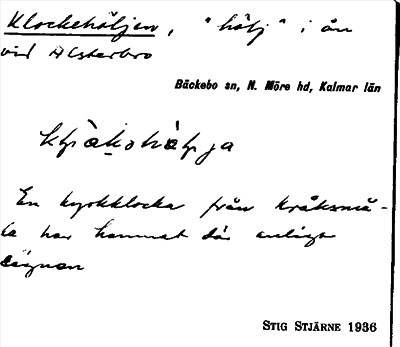 Klockehöljen, "hölj" i ån
vid Alsterbro
Bäckebo sn, N. Möre hd, Kalmar län
En kyrkklocka från Kråksmå-
la har hamnat där enligt
sägnen
STIG STJÄRNE 1936